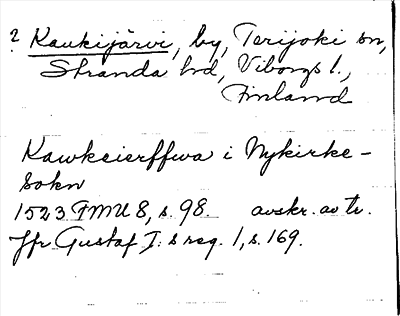 ? Kaukijärvi, by, Terijoki sn,
Stranda hd, Viborgs l.,
Finland
Kawkeierffwa i Nykirke-
sokn
1523 FMU 8, s. 98. avskr. av tr.
Jfr Gustaf I:s reg. 1, s. 169.